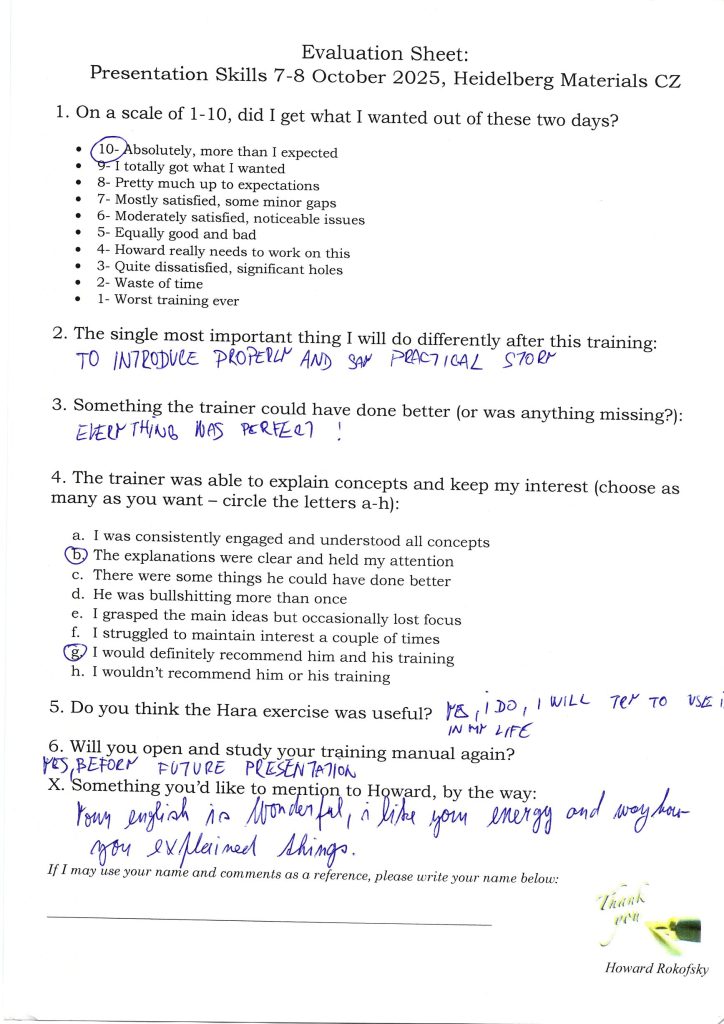 Evaluation Sheet:
Presentation Skills 7-8 October 2025, Heidelberg Materials CZ
1. On a scale of 1-10, did I get what I wanted out of these two days?
• 10- Absolutely, more than I expected
• 9- I totally got what I wanted
• 8- Pretty much up to expectations
• 7- Mostly satisfied, some minor gaps
• 6- Moderately satisfied, noticeable issues
• 5- Equally good and bad
• 4- Howard really needs to work on this
• 3- Quite dissatisfied, significant holes
• 2- Waste of time
• 1- Worst training ever
2. The single most important thing I will do differently after this training:
TO INTRODUCE PROPERLY AND SAY PRACTICAL STORY
3. Something the trainer could have done better (or was anything missing?):
EVERYTHING WAS PERFECT !
4. The trainer was able to explain concepts and keep my interest (choose as
many as you want – circle the letters a-h):
a. I was consistently engaged and understood all concepts
b. The explanations were clear and held my attention
c. There were some things he could have done better
d. He was bullshitting more than once
e. I grasped the main ideas but occasionally lost focus
f. I struggled to maintain interest a couple of times
g. I would definitely recommend him and his training
h. I wouldn't recommend him or his training
5. Do you think the Hara exercise was useful? YES, I DO, I WILL TRY TO USE
IN MY LIFE
6. Will you open and study your training manual again?
YES, BEFORY FUTURE PRESENTATION
X. Something you'd like to mention to Howard, by the way:
Your english is wonderful, i like your energy and way how
you explained things.
If I may use your name and comments as a reference, please write your name below:
Thank
you
Howard Rokofsky